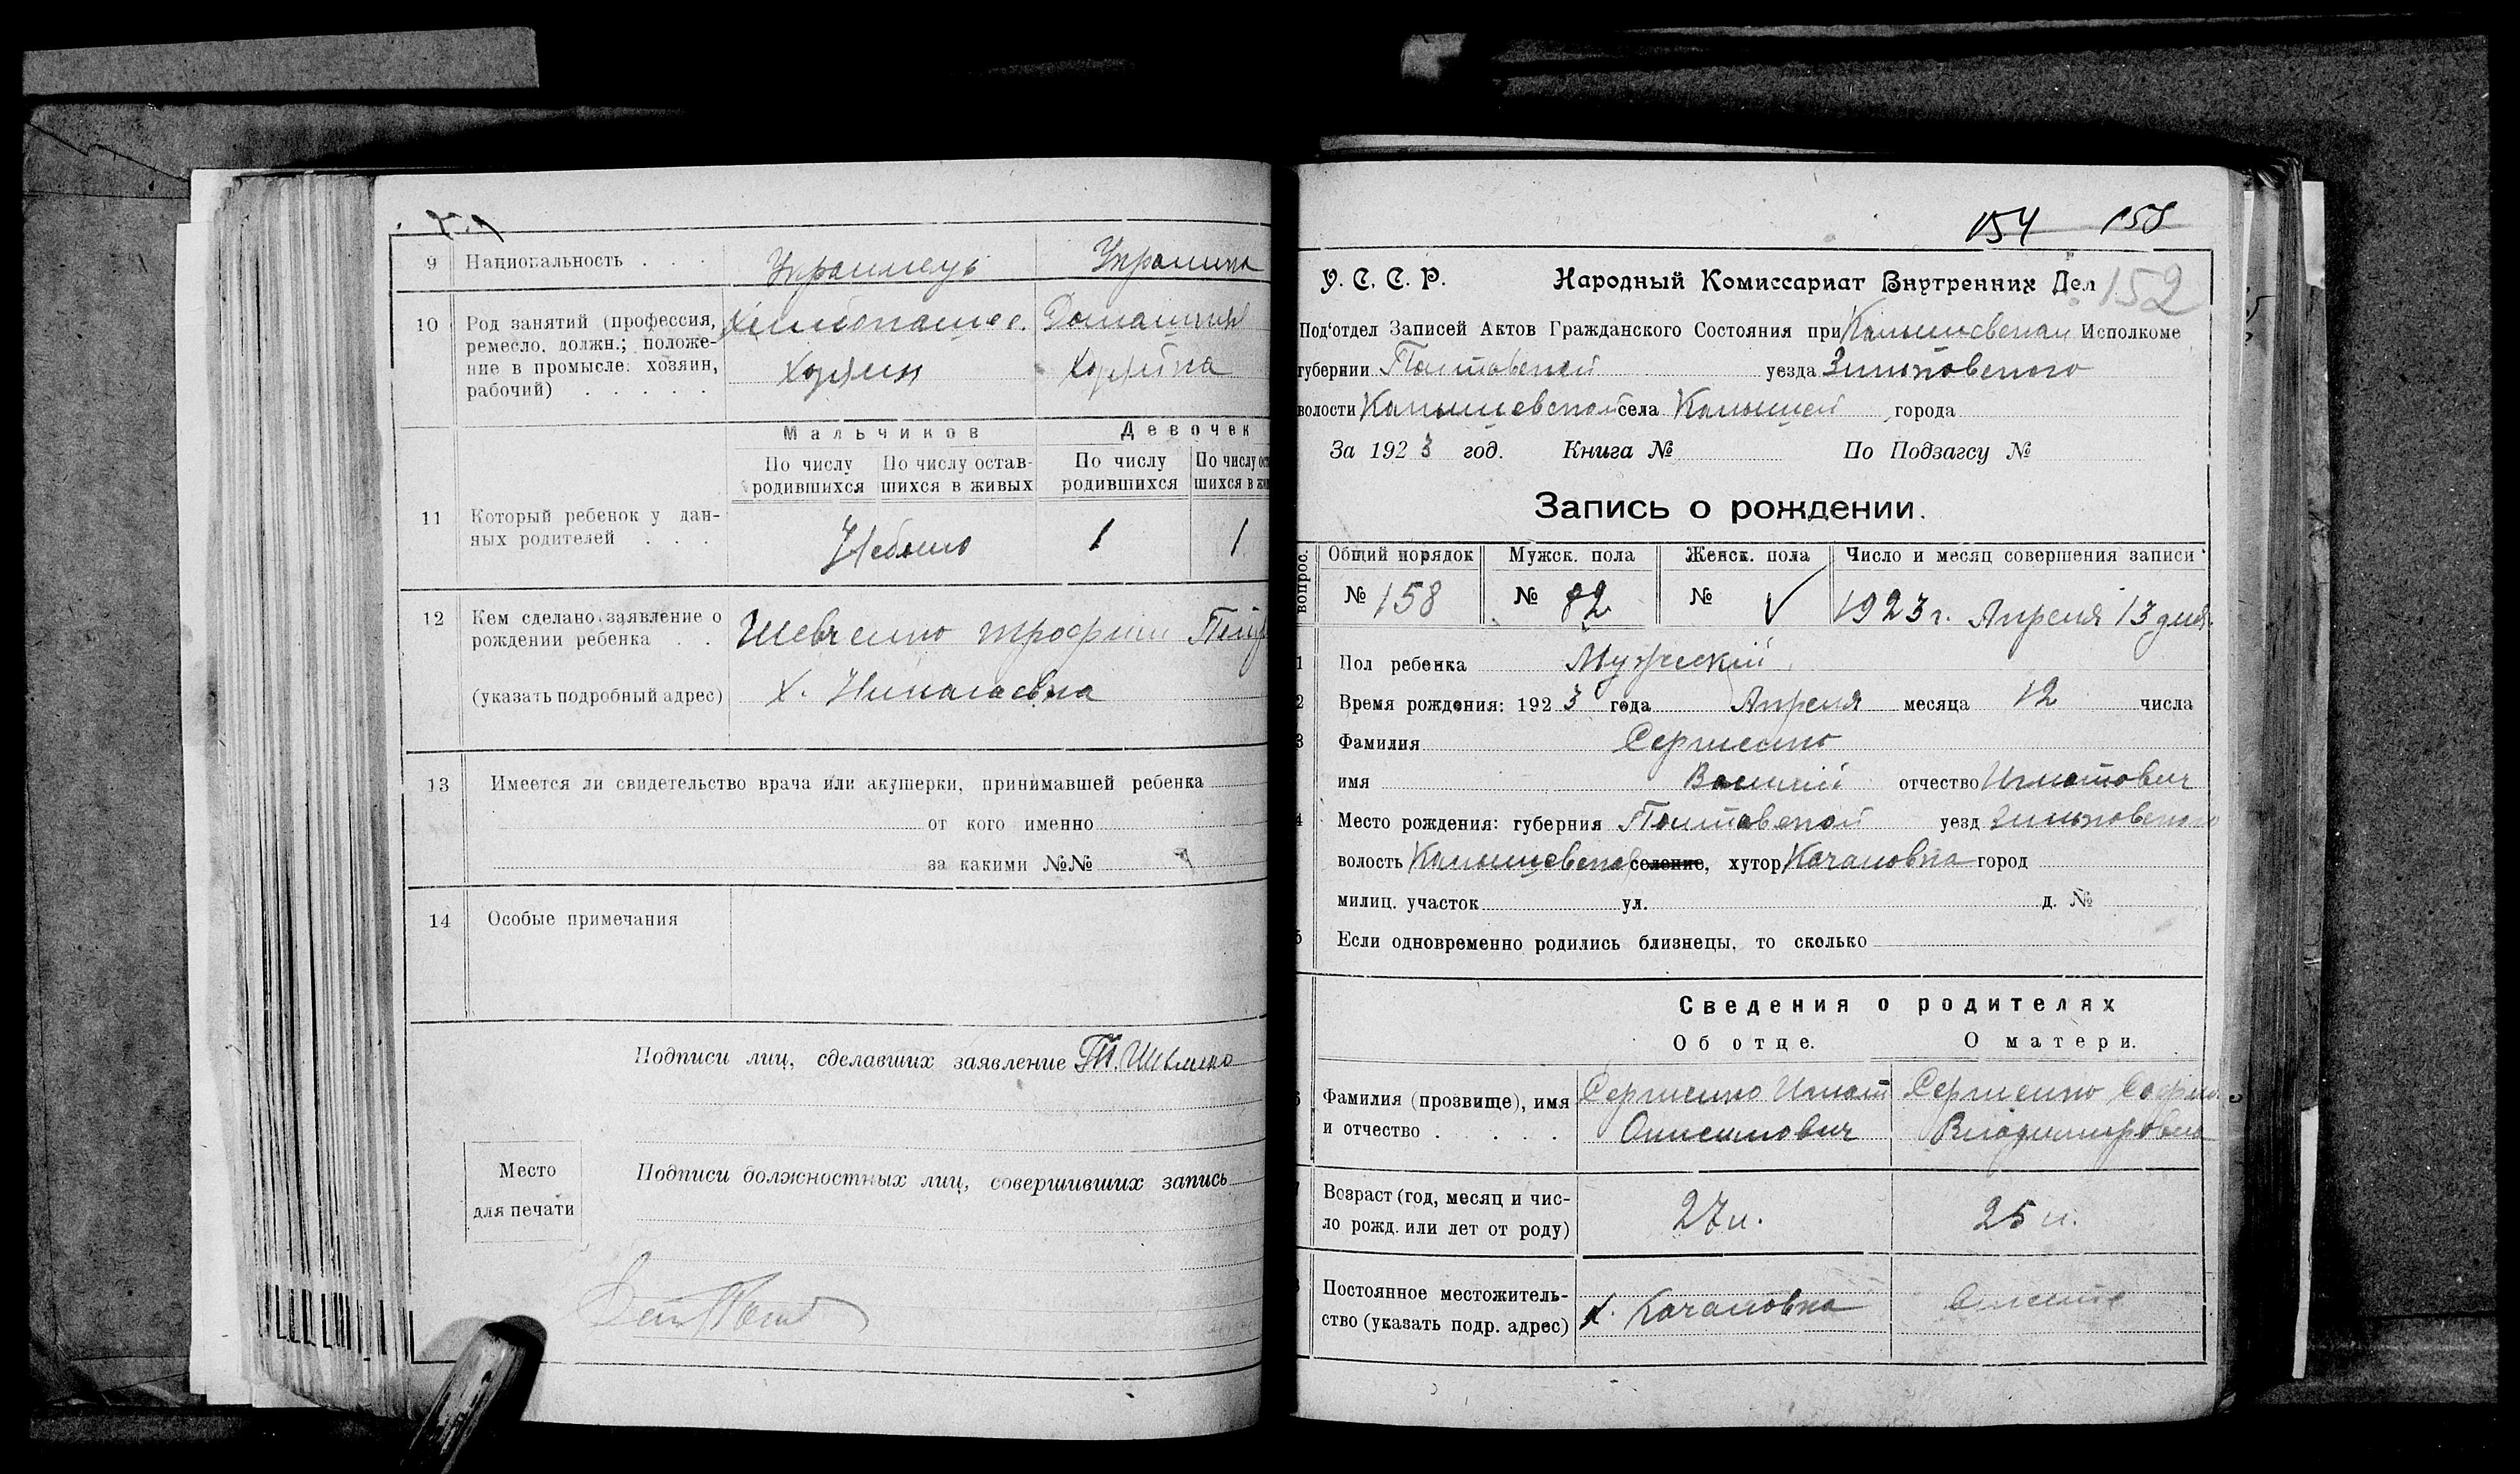 9 Национальность . . . Украинец Украинка
10 Род занятий (профессия, Хлебопашес. Домашняя
ремесло, должн.; положе-
ние в промысле: хозяин, хозяин хозяйка
рабочий) . . . . .
Мальчиков Девочек
По числу По числу остав- По числу По числу ос
родившихся шихся в живых родившихся шихся в жи
11 Который ребенок у дан-
ных родителей . . . Небыло 1 1
12 Кем сделано заявление о
рождении ребенка . . Шевченко Трофим
(указать подробный адрес) х. Николаевка
13 Имеется ли свидетельство врача или акушерки, принимавшей ребенка
от кого именно
за какими №№
14 Особые примечания
Подписи лиц, сделавших заявление Т. Шевченко
Место
для печати
Подписи должностных лиц, совершивших запись
154 158
У. С. С. Р. Народный Комиссариат Внутренних Дел 152
Под'отдел Записей Актов Гражданского Состояния при Исполкоме
губернии Полтавской уезда Зиньковского
волости села города
За 1923 год. Книга № По Подзагсу №
Запись о рождении.
вопрос. Общий порядок Мужск. пола Женск. пола Число и месяц совершения записи
№ 158 № 82 № V 1923 г. Апреля 13 дня.
1 Пол ребенка Мужеский
2 Время рождения: 1923 года Апреля месяца 12 числа
3 Фамилия Сергиенко
имя Василий отчество Игнатович
4 Место рождения: губерния Полтавской уезд Зиньковского
волость селение, хутор Качановка город
милиц. участок ул. д. №
5 Если одновременно родились близнецы, то сколько
Сведения о родителях
Об отце. О матери.
6 Фамилия (прозвище), имя Сергиенко Игнат Сергиенко Софи
и отчество . . . . Онисимович Владимировна
7 Возраст (год, месяц и чис- 27 л. 25 л.
ло рожд. или лет от роду)
8 Постоянное местожитель-
ство (указать подр. адрес) х. Качановка